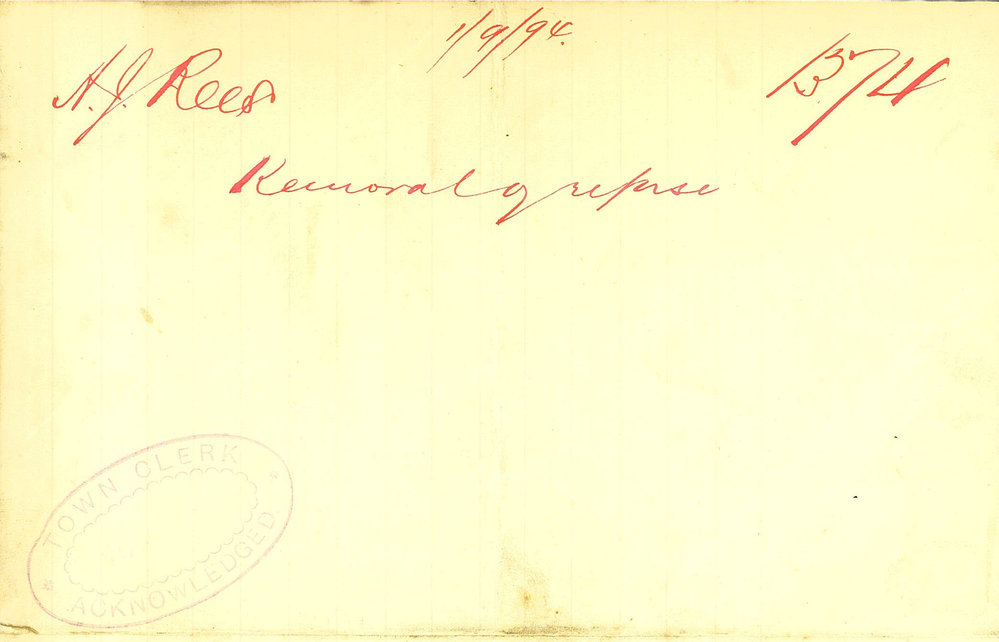 1/9/94.
A. J. Rees
1374
Removal of refuse
TOWN CLERK
* ACKNOWLEDGED. *